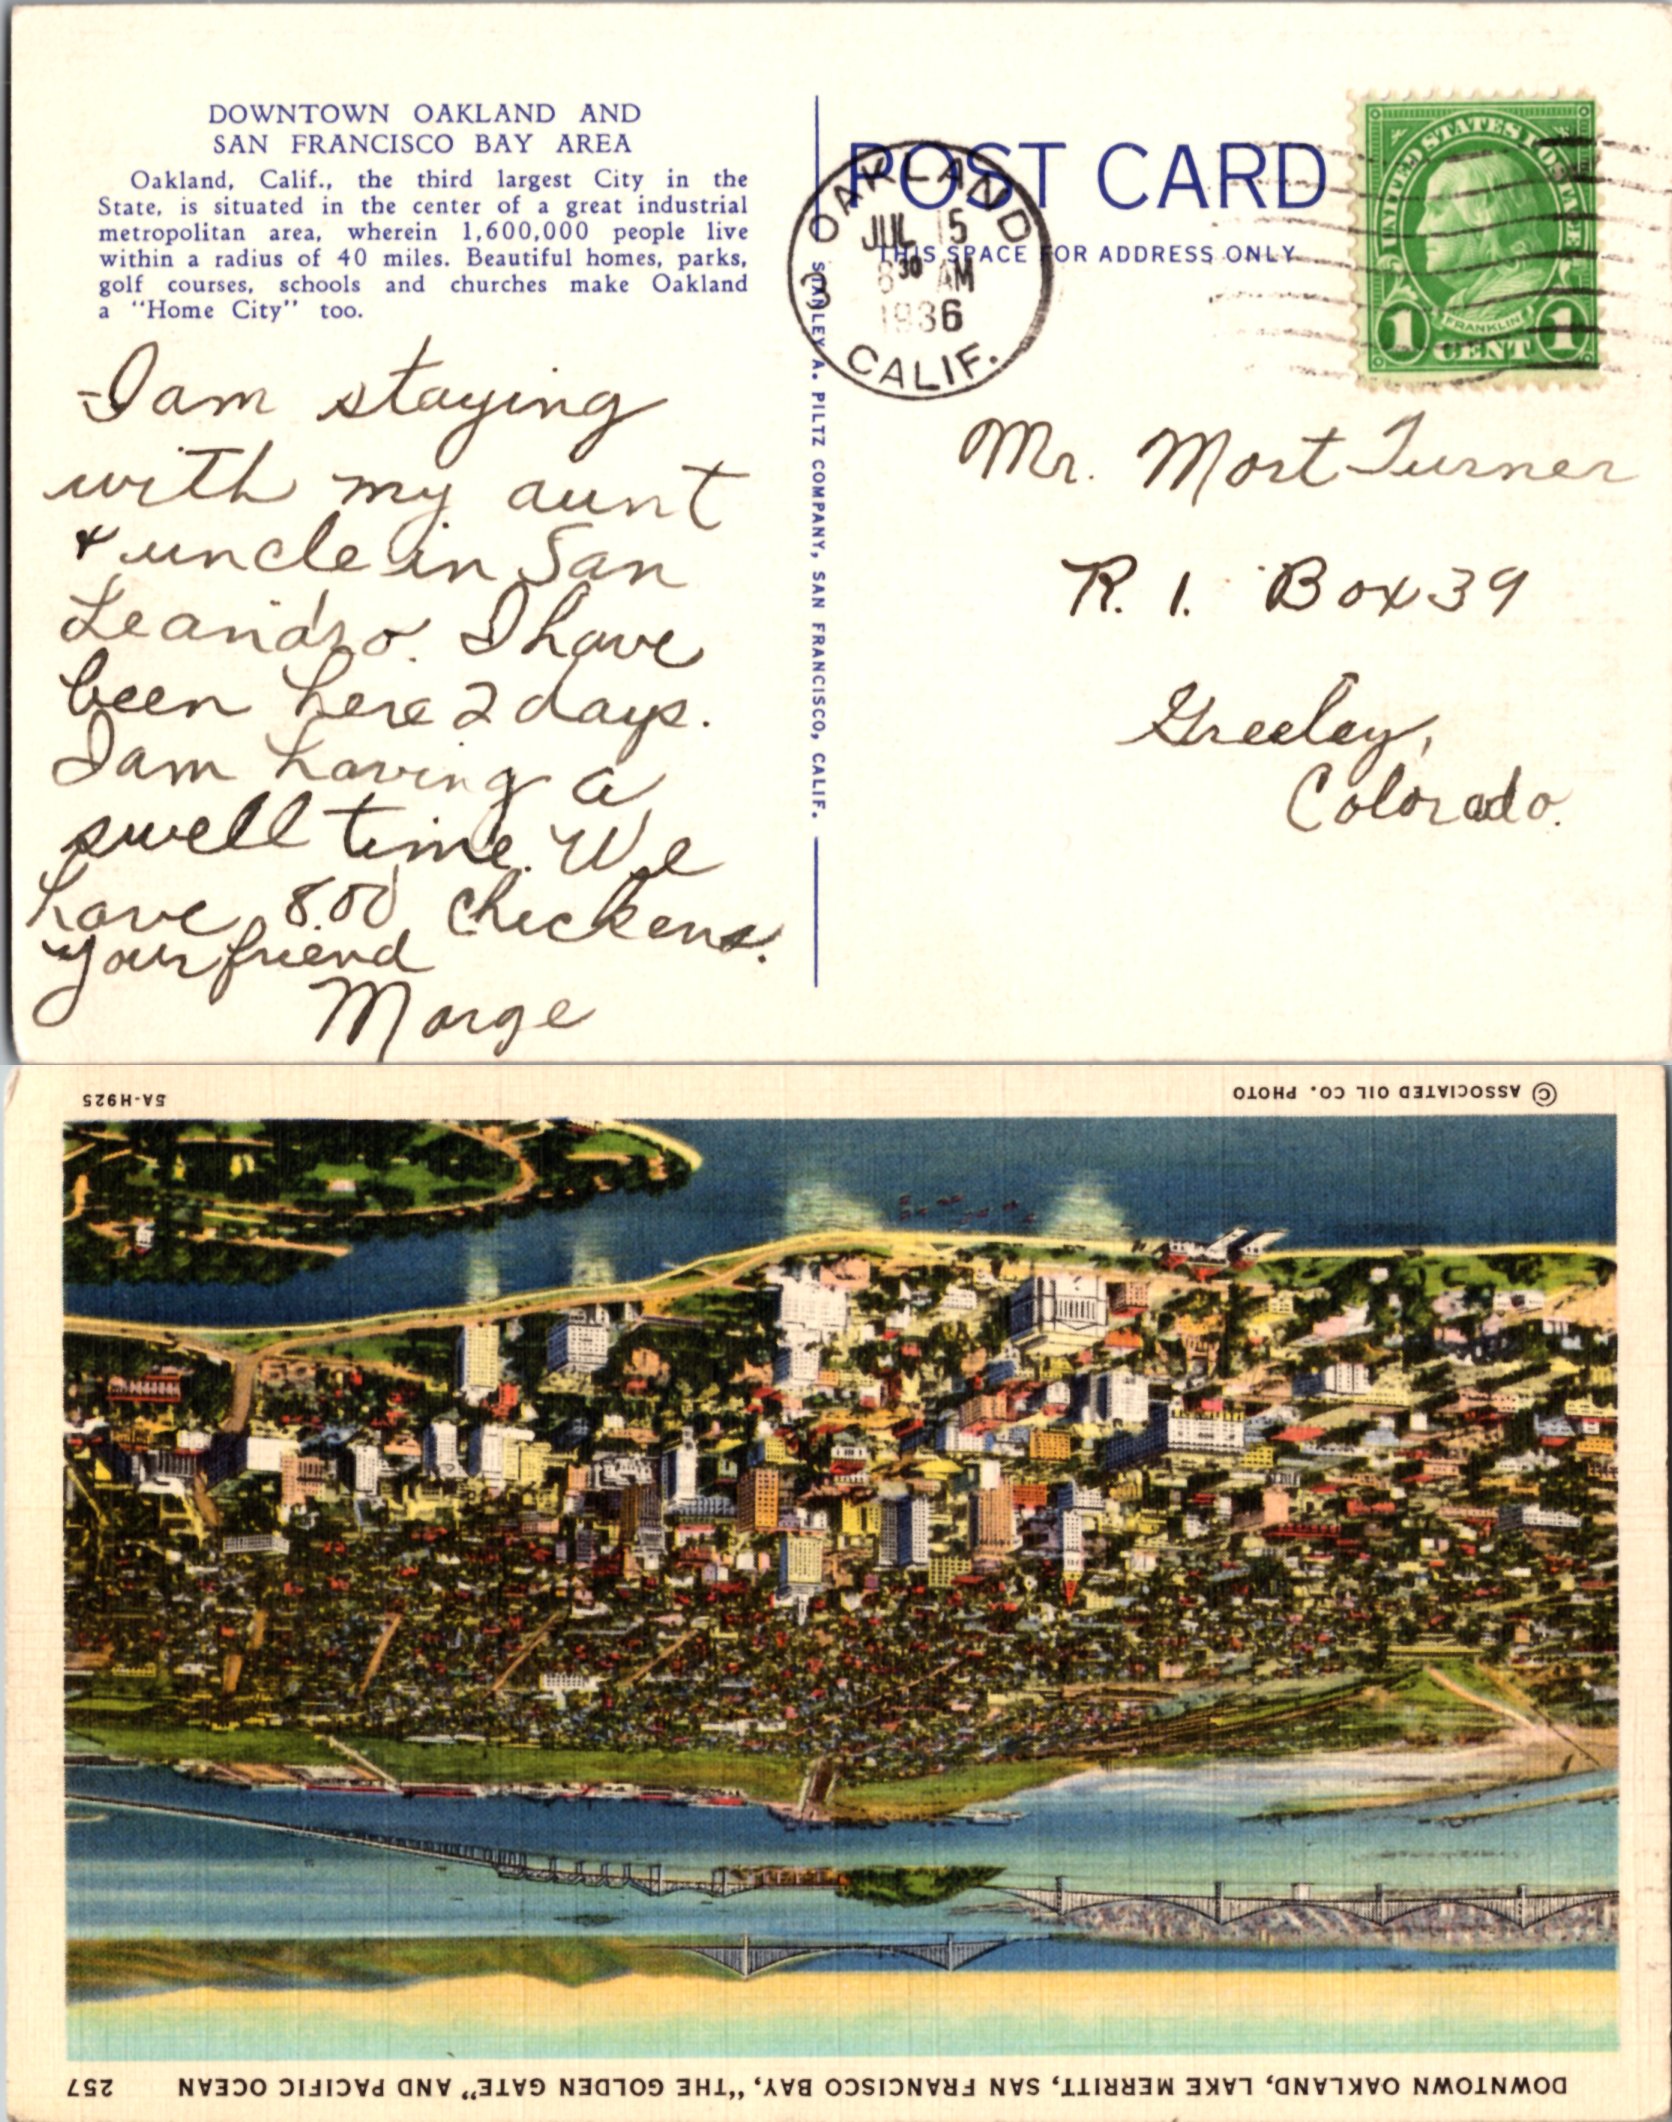 DOWNTOWN OAKLAND AND
SAN FRANCISCO BAY AREA
Oakland, Calif., the third largest City in the
State, is situated in the center of a great industrial
metropolitan area, wherein 1,600,000 people live
within a radius of 40 miles. Beautiful homes, parks,
golf courses, schools and churches make Oakland
a "Home City" too.
I am staying
with my aunt
& uncle in San
Leandro. I have
been here 2 days.
I am having a
swell time. We
have 800 chickens.
your friend
Marge
STANLEY A. PILTZ COMPANY, SAN FRANCISCO, CALIF.
POST CARD
THIS SPACE FOR ADDRESS ONLY
OAKLAND
JUL 15
8 30 AM
1936
CALIF.
3
UNITED STATES POSTAGE
FRANKLIN
1 CENT 1
Mr. Mort Turner
R. 1. Box 39
Greeley,
Colorado.
DOWNTOWN OAKLAND, LAKE MERRITT, SAN FRANCISCO BAY, "THE GOLDEN GATE" AND PACIFIC OCEAN 257
© ASSOCIATED OIL CO. PHOTO
5A-H925